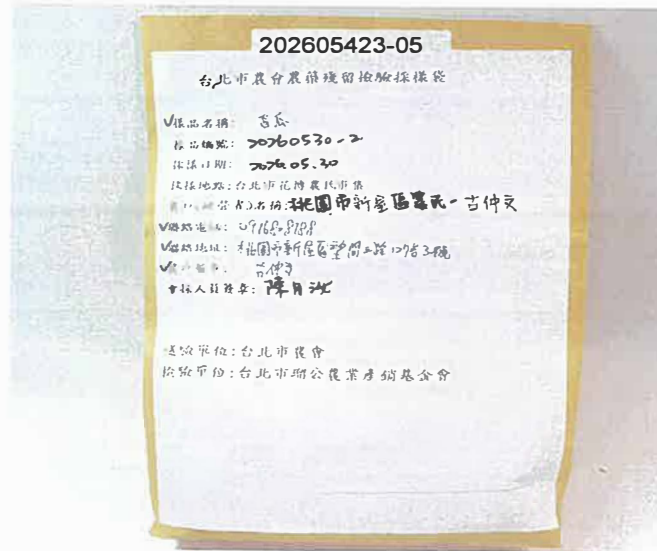 202605423-05
台北市農會農藥殘留檢驗採樣袋
V樣品名稱: 苦瓜
樣品編號: 20260530-2
採樣日期: 2026.05.30
採樣地點:台北市花博農民市集
名稱:桃園市新屋區農民-古仲文
V聯絡電話:
V聯絡地址: 桃園市新屋區望間三路 3號
V 古仲文
會採人員簽章: 陳月
送驗單位:台北市農會
檢驗單位:台北市瑠公農業產銷基金會